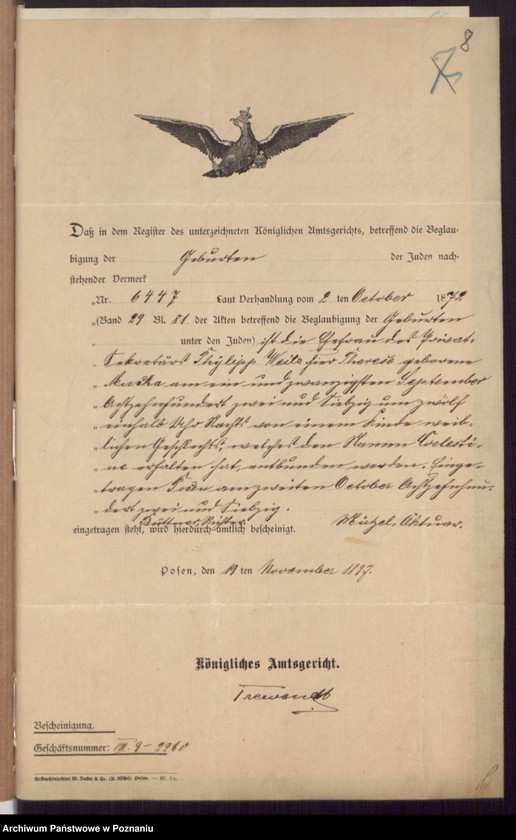 8
7
Daß in dem Register des unterzeichneten Königlichen Amtsgerichts, betreffend die Beglau-
bigung der Geburten der Juden nach-
stehender Vermerk
„Nr. 6447 Laut Verhandlung vom 2 ten October 1872
„(Band 29 Bl. 81 der Akten betreffend die Beglaubigung der Geburten
„ unter den Juden) ist die Ehefrau des Privat-
„ Sekretärs Philipp Weik hier Therese geborene
„ am ein und zwanzigsten September
„ Achtzehnhundert zwei und Siebzig um zwölf
„ einhalb Uhr Nachts von einem Kinde weib-
„ lichen Geschlechts, welches den Namen Coelesti-
„ ne erhalten hat, entbunden worden. Einge-
„ tragen Posen am zweiten October Achtzehnhun-
„ dert zwei und Siebzig.
Büttner, Richter. Aktuar.
eingetragen steht, wird hierdurch amtlich bescheinigt.
Posen, den 19 ten November 1897.
Königliches Amtsgericht.
Bescheinigung.
Geschäftsnummer: III. 9-2960
Hofbuchdruckerei W. Decker & Co. (A. Röstel) Posen.
Archiwum Państwowe w Poznaniu
Archiwum Państwowe w Poznaniu